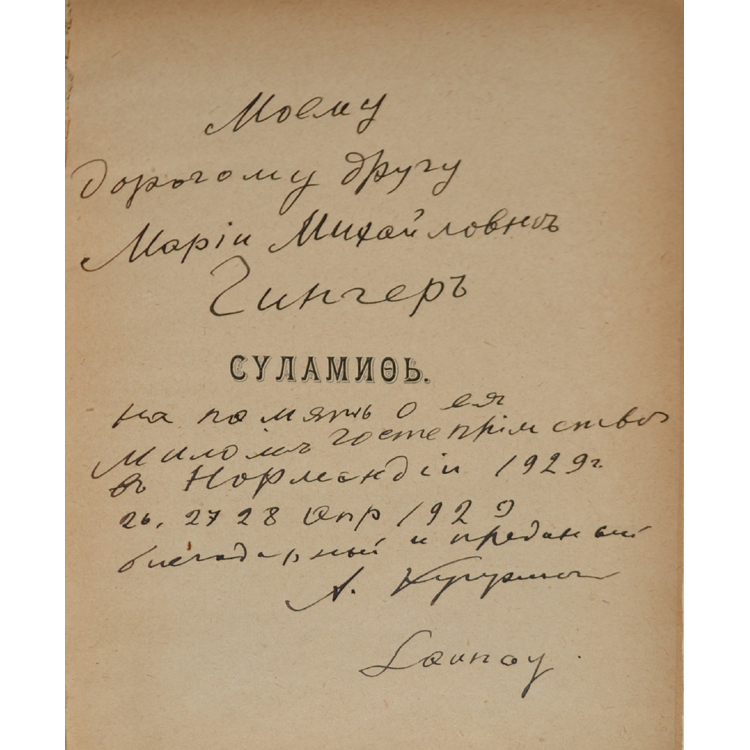 Моему
дорогому другу
Маріи Михайловнѣ
Гингеръ
СУЛАМИѲЬ.
на память о ея
миломъ гостепріимствѣ
въ Нормандіи 1929 г.
26, 27 28 Апр 1929
благодарный и преданный
А. Куприн
Launay.